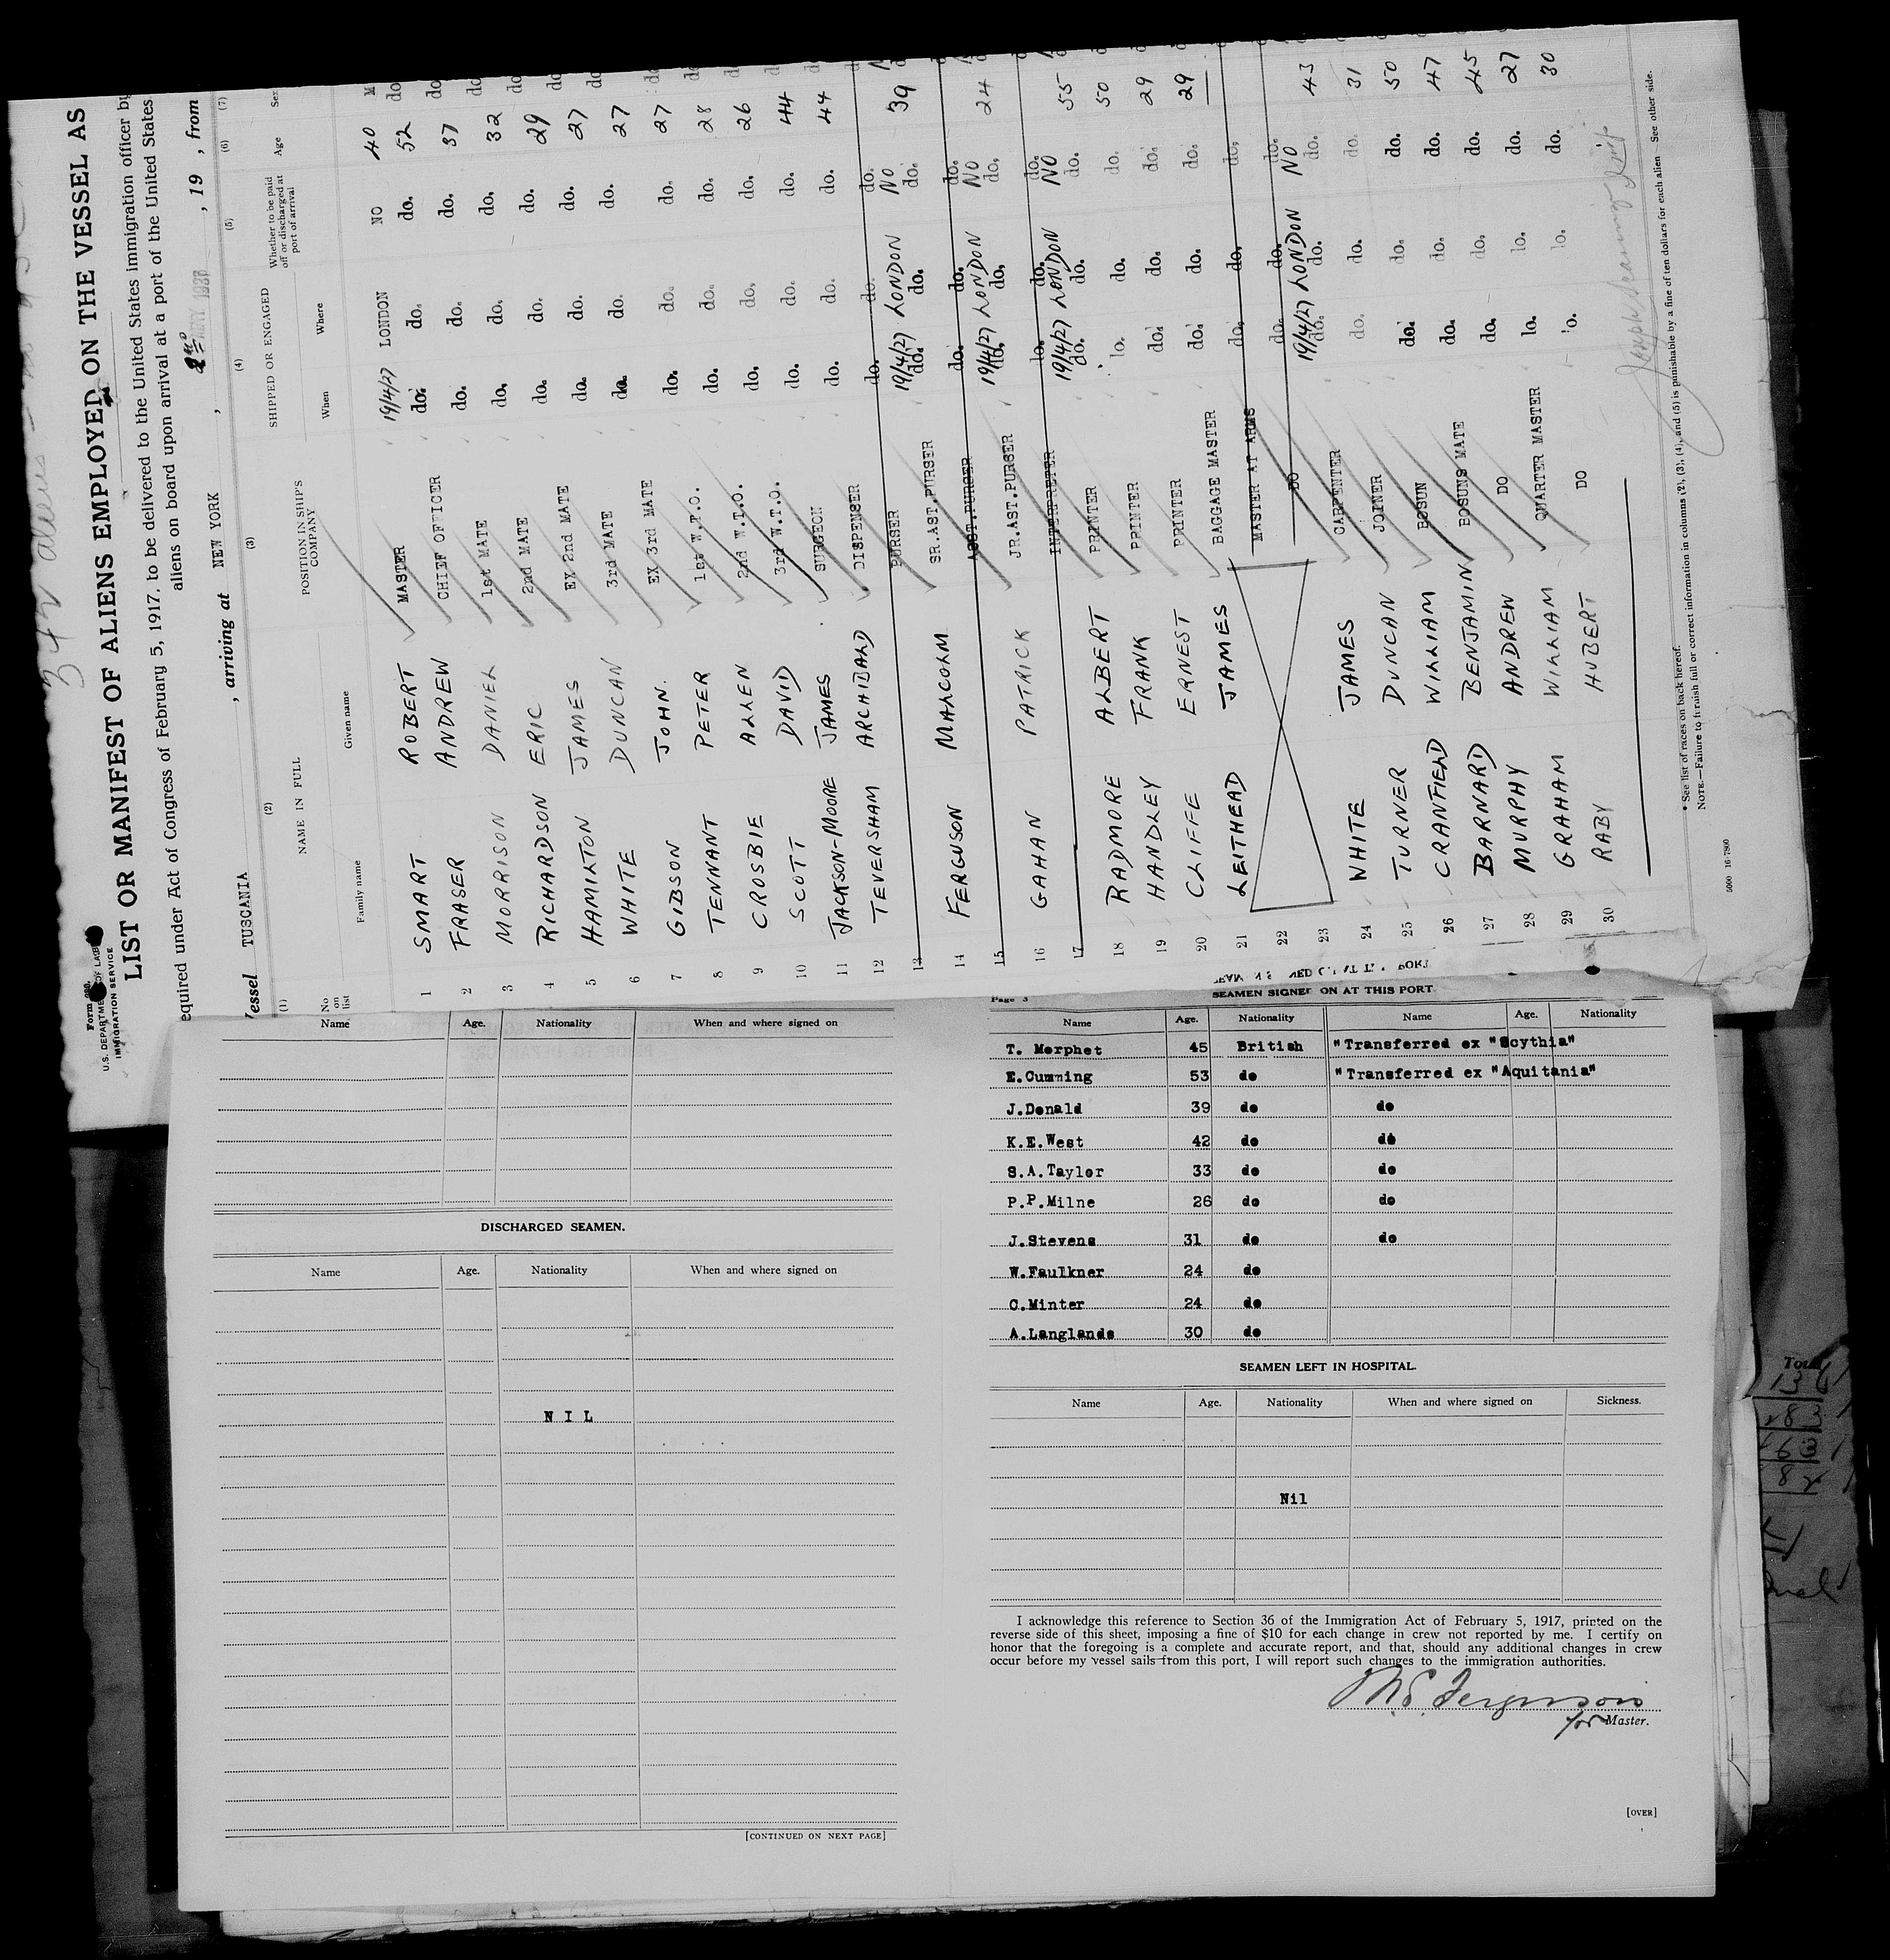 342 aliens
Form 680.
U.S. DEPARTMENT OF LABOR
IMMIGRATION SERVICE
LIST OR MANIFEST OF ALIENS EMPLOYED ON THE VESSEL AS
equired under Act of Congress of February 5, 1917. to be delivered to the United States immigration officer by
aliens on board upon arrival at a port of the United States
essel TUSCANIA , arriving at NEW YORK , , 19 , from
(1) (2) (3) (4) (5) (6) (7)
No on list NAME IN FULL POSITION IN SHIP'S COMPANY SHIPPED OR ENGAGED Whether to be paid off or discharged at port of arrival Age Sex
Family name Given name When Where
1 SMART ROBERT MASTER 19/4/27 LONDON NO 40 M
2 FRASER ANDREW CHIEF OFFICER do. do. do. 52 do
3 MORRISON DANIEL 1st MATE do. do. do. 37 do
4 RICHARDSON ERIC 2nd MATE do. do. do. 32 do
5 HAMILTON JAMES EX 2nd MATE do. do. do. 29 do
6 WHITE DUNCAN 3rd MATE do. do. do. 27 do
7 GIBSON JOHN. EX 3rd MATE do. do. do. 27 do
8 TENNANT PETER 1st W.T.O. do. do. do. 27 do
9 CROSBIE ALLEN 2nd W.T.O. do. do. do. 28 do
10 SCOTT DAVID 3rd W.T.O. do. do. do. 26 do
11 JACKSON-MOORE JAMES SURGEON do. do. do. 44 do
12 TEVERSHAM ARCHIBALD DISPENSER do. do. do. 44 do
13 PURSER do. do. do.
14 FERGUSON MALCOLM SR.AST.PURSER 19/4/27 LONDON NO 39
do. do. do.
15 ASST.PURSER do. do. do.
16 GAHAN PATRICK JR.AST.PURSER 19/4/27 LONDON NO 24
do. do. do.
17 INTERPRETER do. do. do.
18 RADMORE ALBERT PRINTER 19/4/27 LONDON NO 55
do. do. do.
19 HANDLEY FRANK PRINTER do. do. do. 50
20 CLIFFE ERNEST PRINTER do. do. do. 29
21 LEITHEAD JAMES BAGGAGE MASTER do. do. do. 29
22 MASTER AT ARMS do. do. do.
23 DO do. do. do.
24 WHITE JAMES CARPENTER 19/4/27 LONDON NO 43
do. do. do.
25 TURNER DUNCAN JOINER do. do. do. 31
26 CRANFIELD WILLIAM BOSUN do. do. do. 50
27 BARNARD BENJAMIN BOSUNS MATE do. do. do. 47
28 MURPHY ANDREW DO do. do. do. 45
29 GRAHAM WILLIAM QUARTER MASTER do. do. do. 27
30 RABY HUBERT DO do. do. do. 30
* See list of races on back hereof.
NOTE.—Failure to furnish full or correct information in columns (2), (3), (4), and (5) is punishable by a fine of ten dollars for each alien See other side.
5000 16-7800
Name Age. Nationality When and where signed on
DISCHARGED SEAMEN.
Name Age. Nationality When and where signed on
N I L
[CONTINUED ON NEXT PAGE]
Page 3
SEAMEN SIGNED ON AT THIS PORT
Name Age. Nationality Name Age. Nationality
T. Morphet 45 British "Transferred ex "Scythia"
E.Cumming 53 do "Transferred ex "Aquitania"
J.Donald 39 do do
K.E.West 42 do do
S.A.Taylor 33 do do
P.P.Milne 26 do do
J.Stevens 31 do do
W.Faulkner 24 do
C.Minter 24 do
A.Langlands 30 do
SEAMEN LEFT IN HOSPITAL.
Name Age. Nationality When and where signed on Sickness.
Nil
I acknowledge this reference to Section 36 of the Immigration Act of February 5, 1917, printed on the
reverse side of this sheet, imposing a fine of $10 for each change in crew not reported by me. I certify on
honor that the foregoing is a complete and accurate report, and that, should any additional changes in crew
occur before my vessel sails from this port, I will report such changes to the immigration authorities.
M.S. Ferguson
for Master.
[OVER]
Total